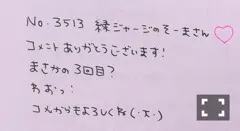 No. 3513 緑ジャージのそーまさん♡
コメントありがとうございます!
まさかの3回目?
わおっ!
コメからもよろしくね(･x･)